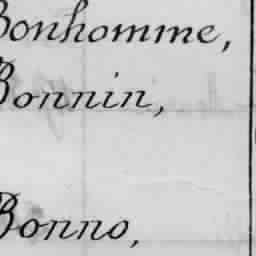 Bonhomme,
Bonnin,
Bonno,